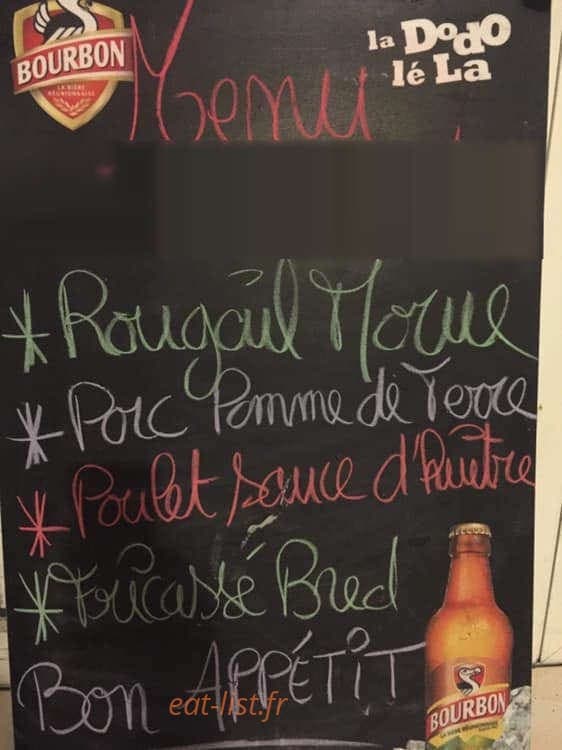 BOURBON
LA BIÈRE
RÉUNIONNAISE
la Dodo
lé La
Menu
* Rougail Morue
* Porc Pomme de Terre
* Poulet Sauce d'huître
* Fricassé Bred
Bon APPÉTIT
eat-list.fr
BOURBON
LA BIÈRE RÉUNIONNAISE